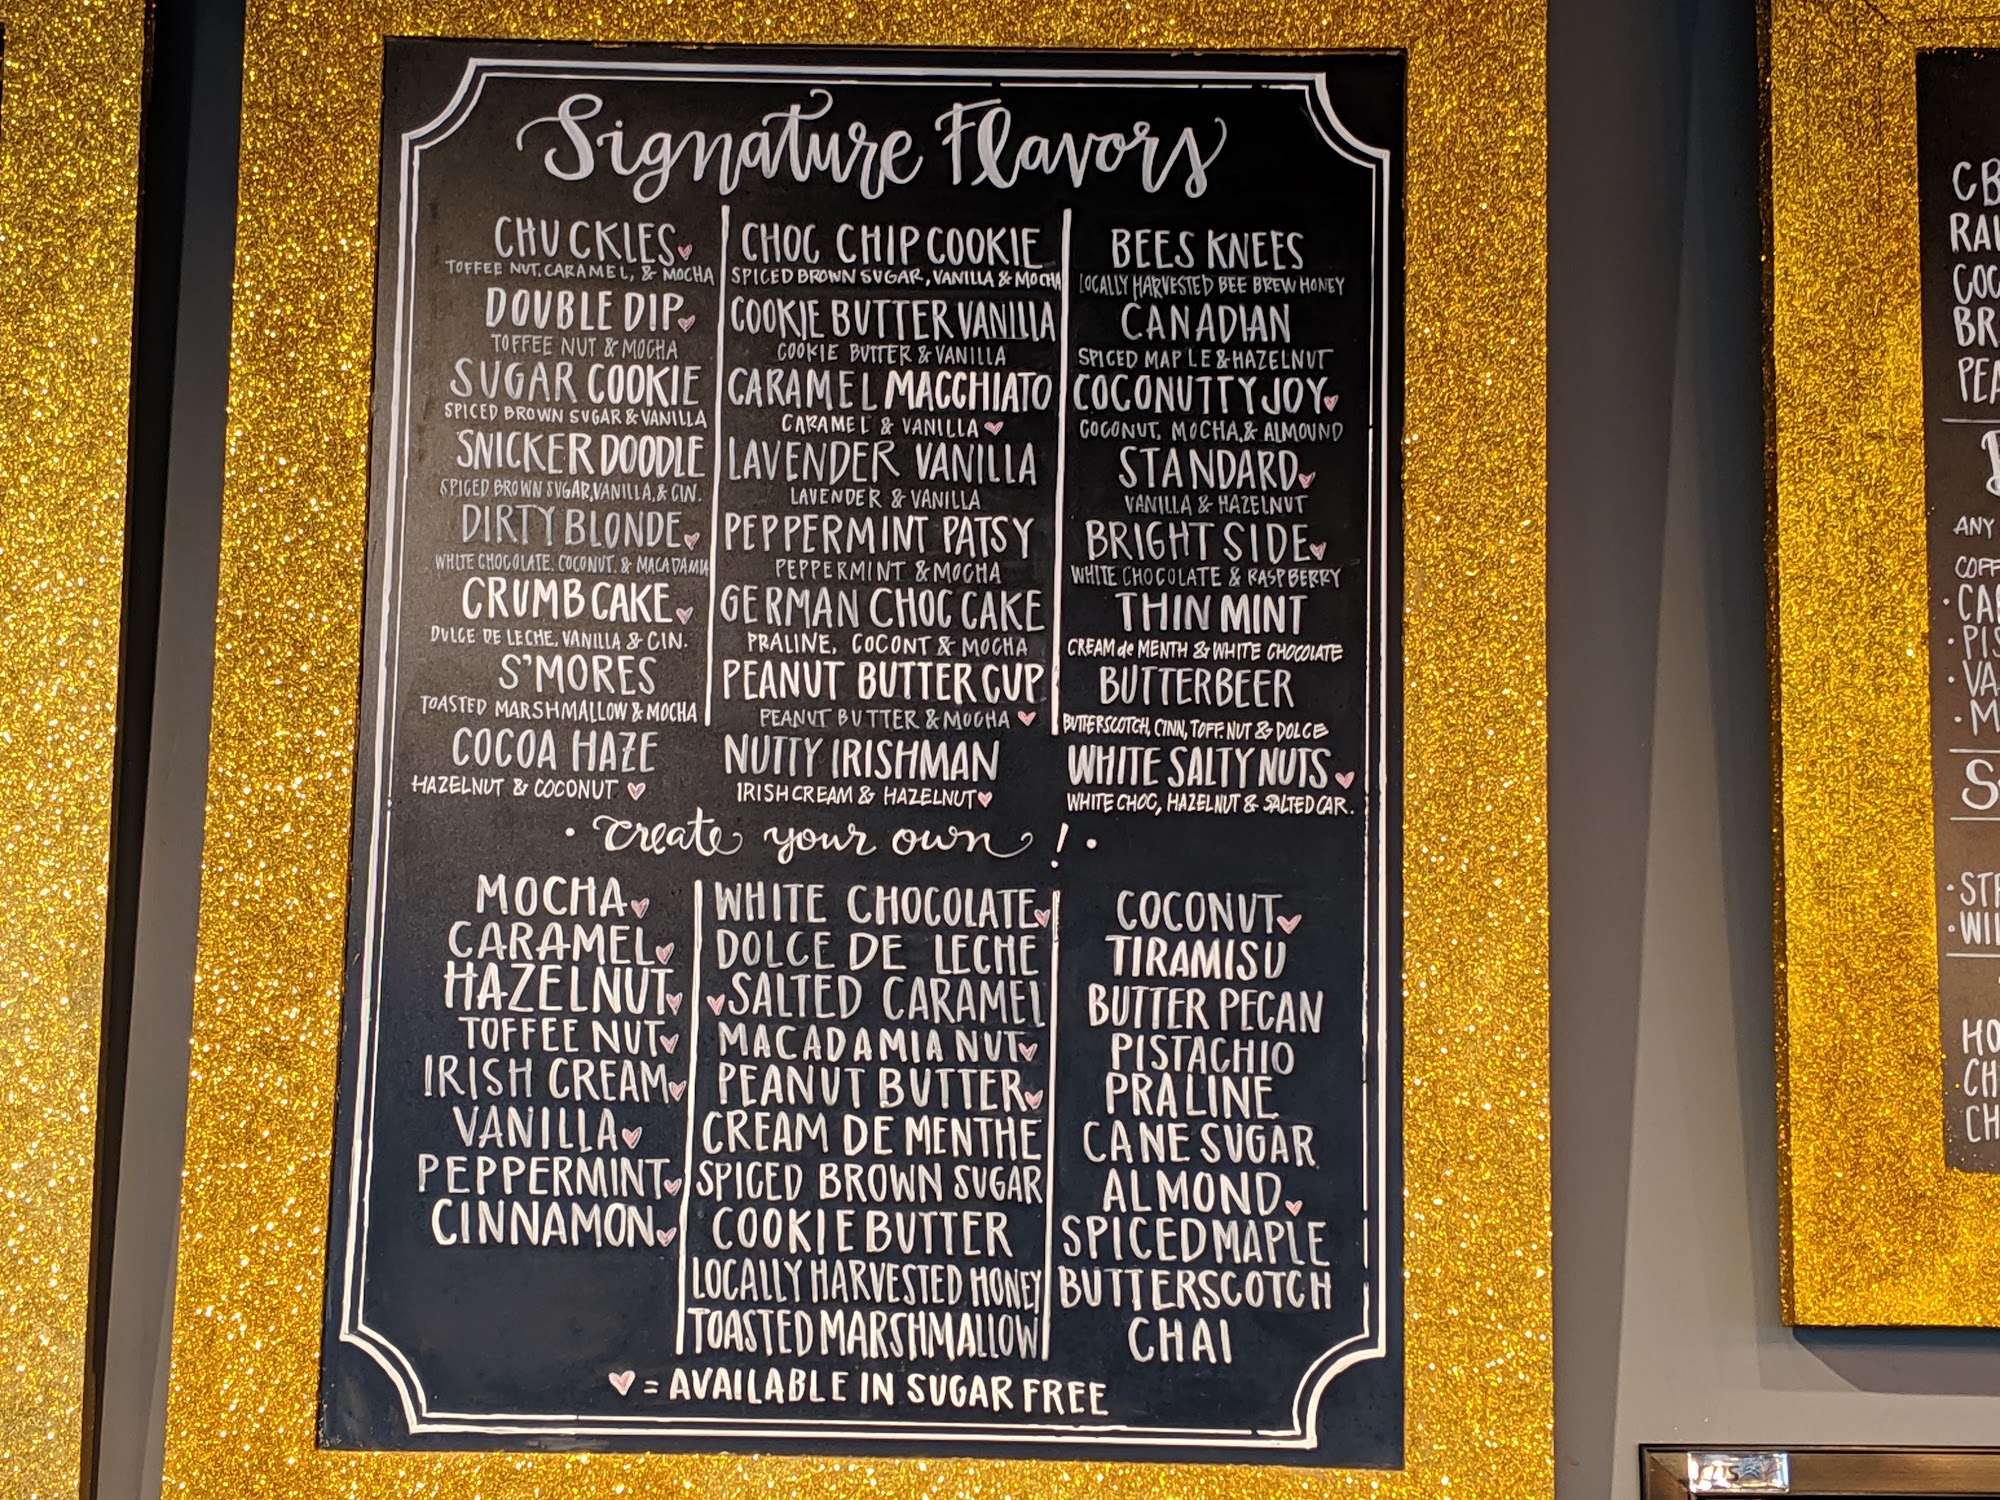 Signature Flavors
CHUCKLES♥
TOFFEE NUT, CARAMEL, & MOCHA
DOUBLE DIP♥
TOFFEE NUT & MOCHA
SUGAR COOKIE
SPICED BROWN SUGAR & VANILLA
SNICKERDOODLE
SPICED BROWN SUGAR, VANILLA, & CIN.
DIRTY BLONDE♥
WHITE CHOCOLATE, COCONUT, & MACADAMIA
CRUMBCAKE♥
DULCE DE LECHE, VANILLA & CIN.
S'MORES
TOASTED MARSHMALLOW & MOCHA
COCOA HAZE
HAZELNUT & COCONUT ♥
CHOC CHIP COOKIE
SPICED BROWN SUGAR, VANILLA & MOCHA
COOKIE BUTTER VANILLA
COOKIE BUTTER & VANILLA
CARAMEL MACCHIATO
CARAMEL & VANILLA ♥
LAVENDER VANILLA
LAVENDER & VANILLA
PEPPERMINT PATSY
PEPPERMINT & MOCHA
GERMAN CHOC CAKE
PRALINE, COCONT & MOCHA
PEANUT BUTTER CUP
PEANUT BUTTER & MOCHA ♥
NUTTY IRISHMAN
IRISH CREAM & HAZELNUT♥
BEES KNEES
LOCALLY HARVESTED BEE BREW HONEY
CANADIAN
SPICED MAPLE & HAZELNUT
COCONUTTY JOY♥
COCONUT, MOCHA, & ALMOUND
STANDARD♥
VANILLA & HAZELNUT
BRIGHT SIDE♥
WHITE CHOCOLATE & RASPBERRY
THIN MINT
CREAM de MENTH & WHITE CHOCOLATE
BUTTERBEER
BUTTERSCOTCH, CINN, TOFF. NUT & DOLCE
WHITE SALTY NUTS ♥
WHITE CHOC, HAZELNUT & SALTED CAR.
• create your own! •
MOCHA♥
CARAMEL♥
HAZELNUT♥
TOFFEE NUT♥
IRISH CREAM♥
VANILLA♥
PEPPERMINT♥
CINNAMON♥
WHITE CHOCOLATE♥
DOLCE DE LECHE
♥SALTED CARAMEL
MACADAMIA NUT♥
PEANUT BUTTER♥
CREAM DE MENTHE
SPICED BROWN SUGAR
COOKIE BUTTER
LOCALLY HARVESTED HONEY
TOASTED MARSHMALLOW
COCONUT♥
TIRAMISU
BUTTER PECAN
PISTACHIO
PRALINE
CANE SUGAR
ALMOND♥
SPICED MAPLE
BUTTERSCOTCH
CHAI
♥ = AVAILABLE IN SUGAR FREE
ANY